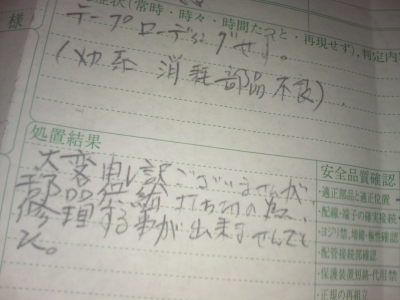 症状(常時・時々・時間たつと・再現せず),判定内
様
テープローディングせず。
(メカ系 消耗部品不良)
処置結果
大変申し訳ございませんが、
部品供給打ち切りの為、
修理する事が出来ませんでし
た。
安全品質確認
・適正部品と適正処置
・配線・端子の確実接続
・ネジ締,増締・極性確認
・配管接続部確認
・保護装置短絡・代用禁
・正規の再組立